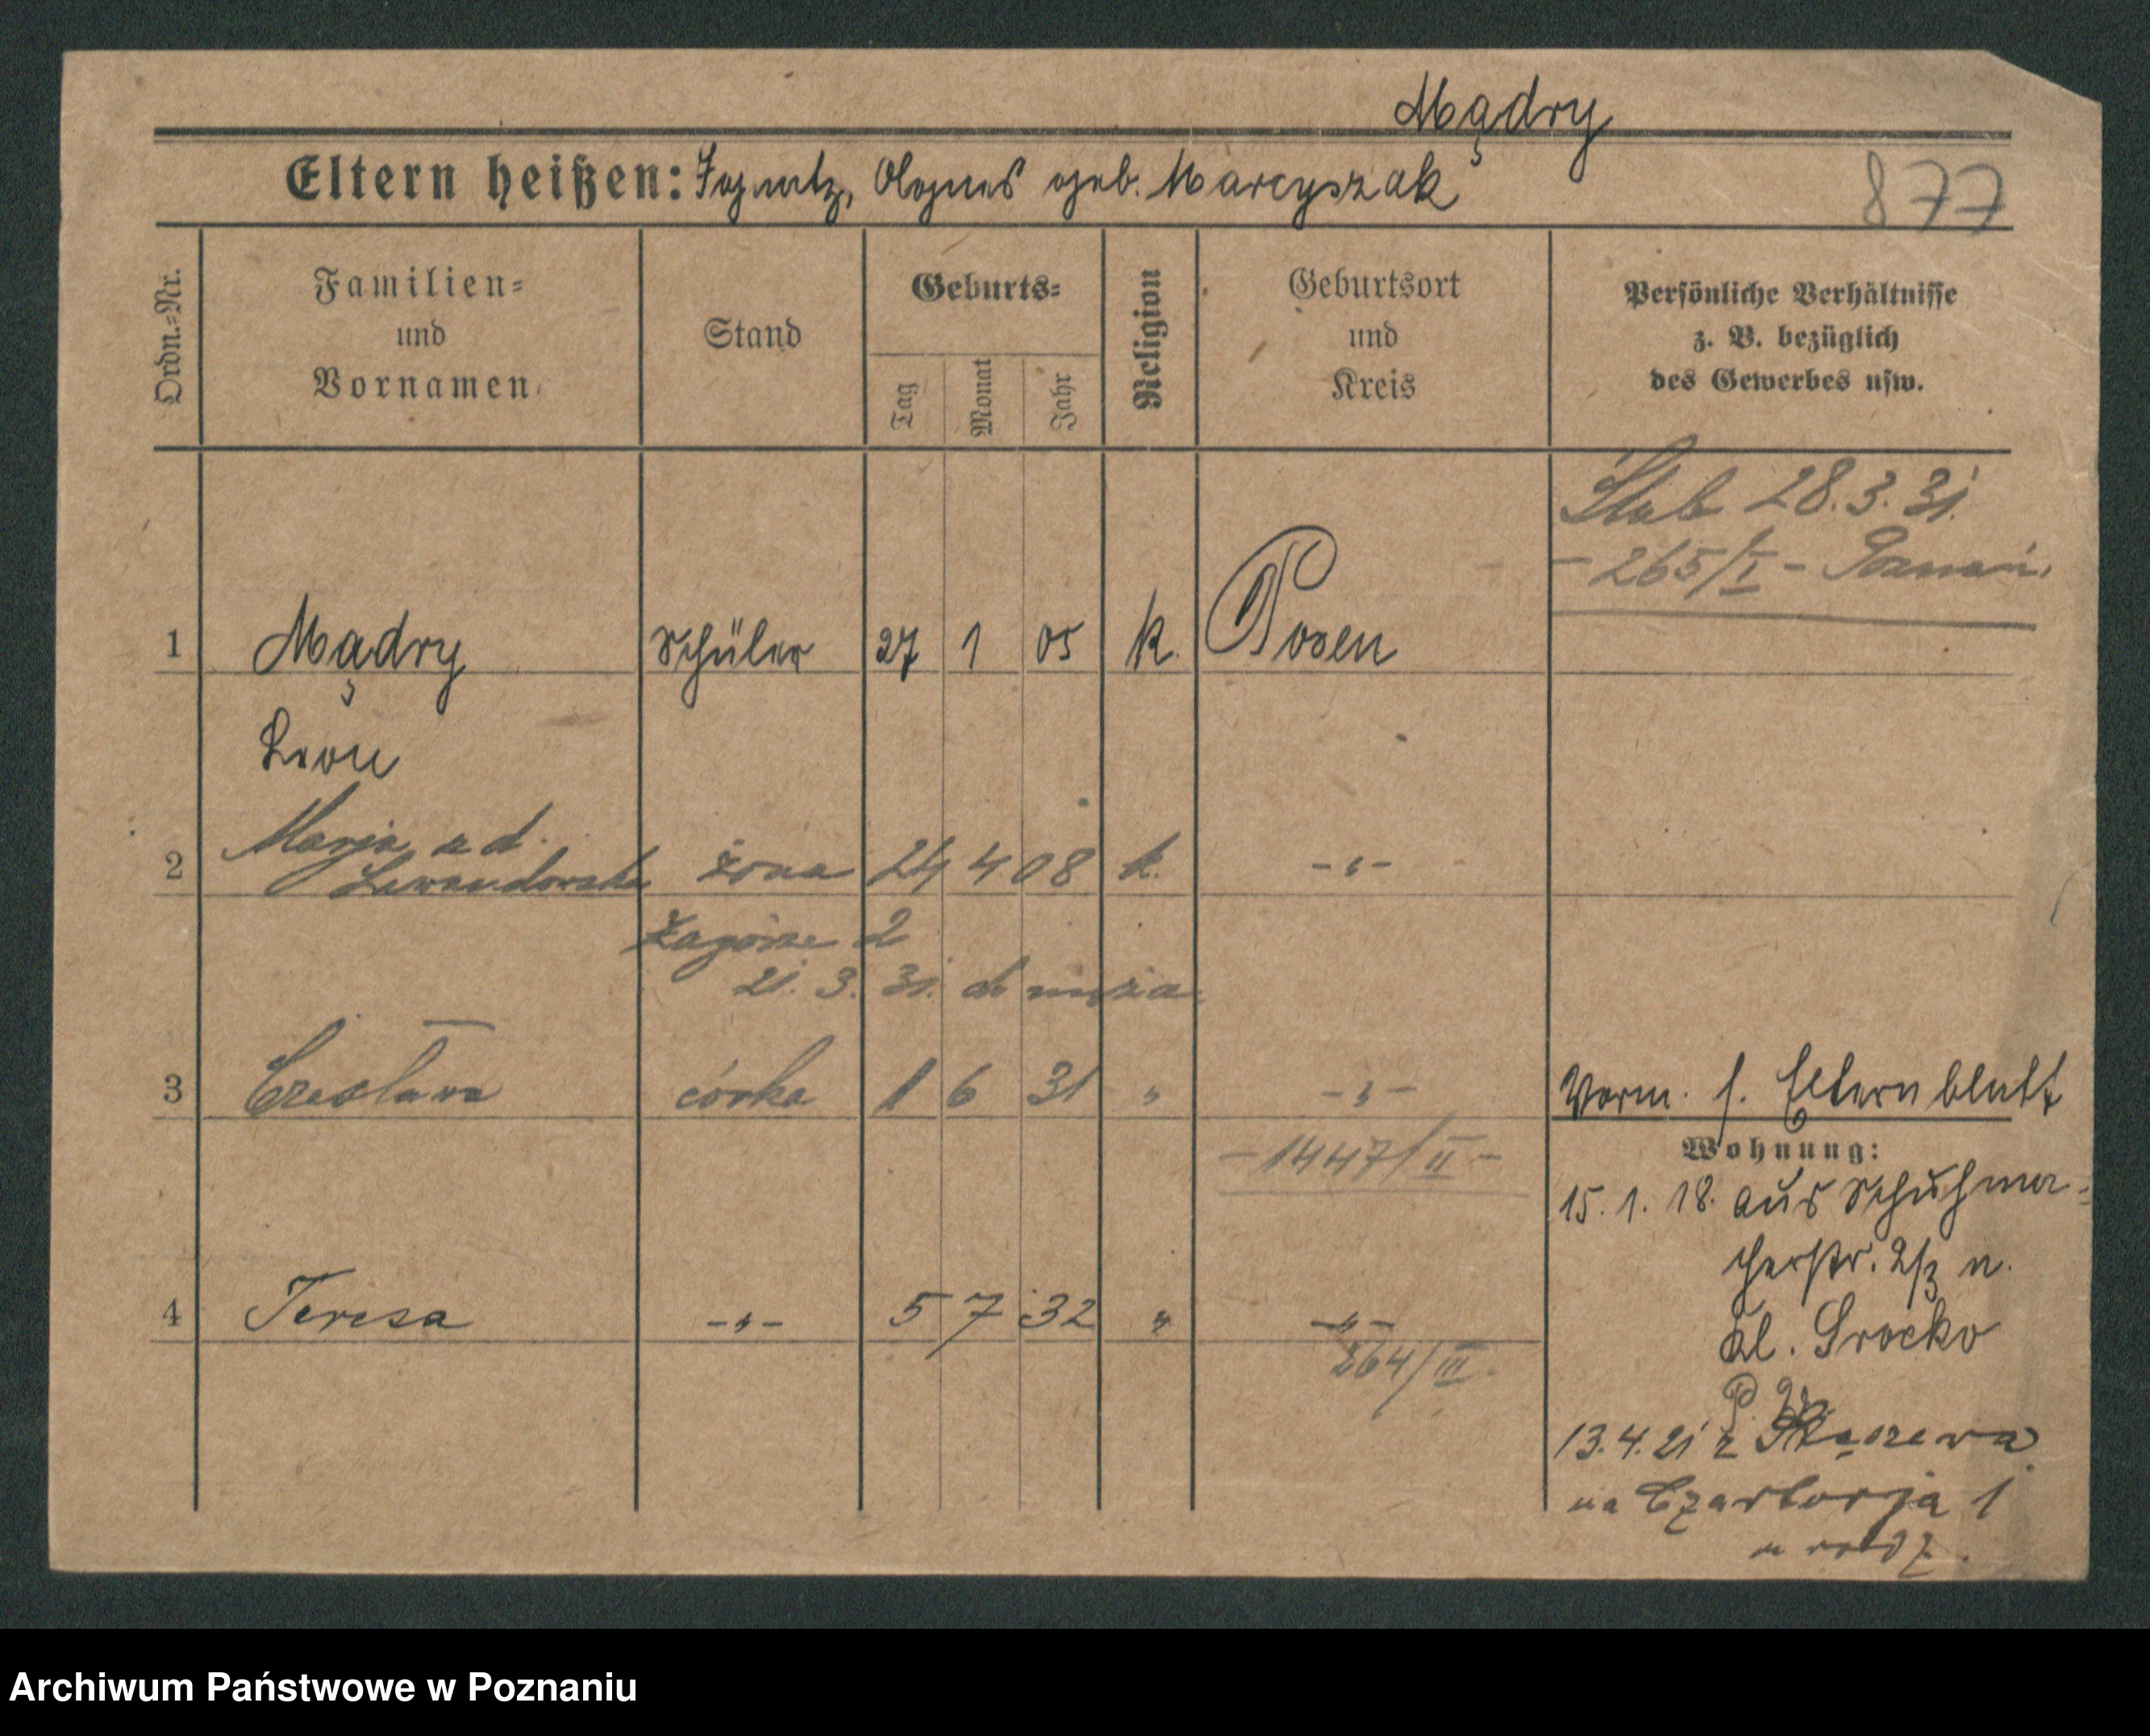 Mądry
Eltern heißen: Ignatz, Agnes geb. Marcyszak
877
Ordn.=Nr.
Familien=
und
Vornamen
Stand
Geburts=
Tag
Monat
Jahr
Religion
Geburtsort
und
Kreis
Persönliche Verhältnisse
z. B. bezüglich
des Gewerbes usw.
Ślub 28.3.31.
- 265/I - Poznań.
1 Mądry Schüler 27 1 05 k. Posen
Leon
2 Marja z d.
Lewandowska żona 24 4 08 k. -„-
Zagórze 2
21.3.31. do męża
3 Czesława córka 1 6 31 „ -„-
- 1447/II -
Verm. s. Elternblatt
Wohnung:
15.1.18. aus Schuhma-
cherstr. 2/3 n.
Kl. Srocko
4 Teresa -„- 5 7 32 „ -„-
264/III.
13.4.21 z
na Czartorja 1